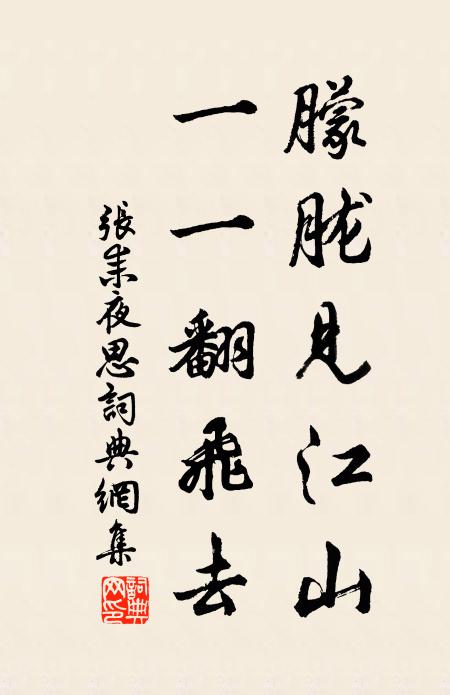 朦胧見江山
一一翻飛去
張耒夜思詞典網集
詞典
网印